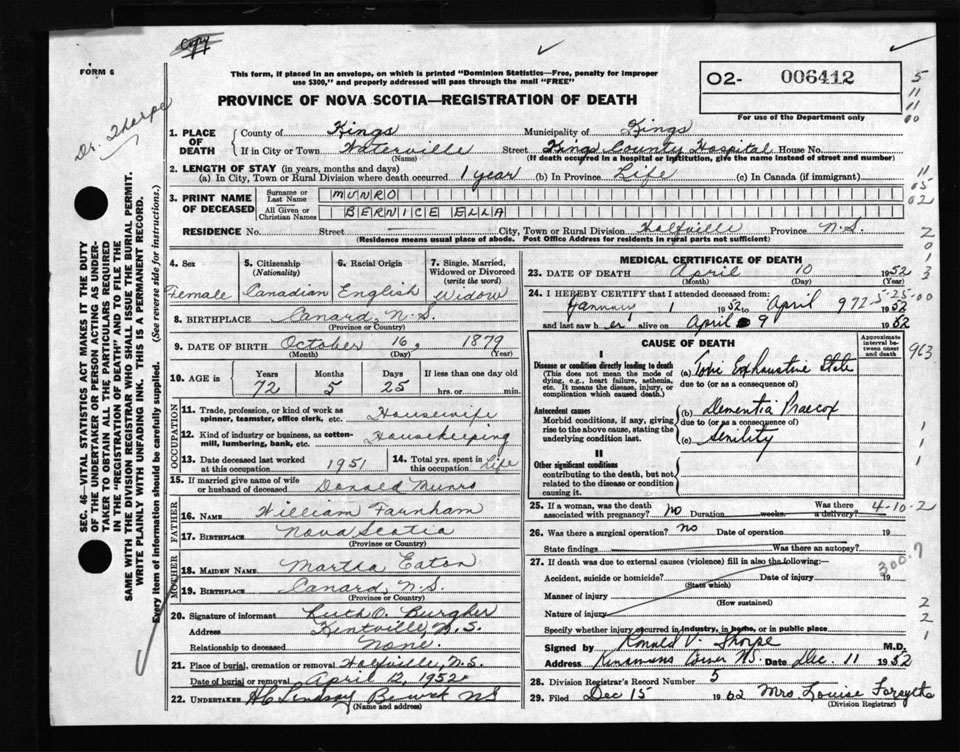 Copy
FORM 6
Dr. Thorpe
This form, if placed in an envelope, on which is printed "Dominion Statistics—Free, penalty for improper
use $300," and properly addressed will pass through the mail "FREE"
PROVINCE OF NOVA SCOTIA—REGISTRATION OF DEATH
O2- 006412
For use of the Department only
5
11
11
00
11
05
02
2
0
1
3
SEC. 46—VITAL STATISTICS ACT MAKES IT THE DUTY
OF THE UNDERTAKER OR PERSON ACTING AS UNDER-
TAKER TO OBTAIN ALL THE PARTICULARS REQUIRED
IN THE "REGISTRATION OF DEATH" AND TO FILE THE
SAME WITH THE DIVISION REGISTRAR WHO SHALL ISSUE THE BURIAL PERMIT.
WRITE PLAINLY WITH UNFADING INK. THIS IS A PERMANENT RECORD.
Every item of information should be carefully supplied. (See reverse side for instructions.)
1. PLACE OF DEATH County of Kings Municipality of Kings
If in City or Town Waterville Street Kings County Hospital House No.
(Name) (If death occurred in a hospital or institution, give the name instead of street and number)
2. LENGTH OF STAY (in years, months and days)
(a) In City, Town or Rural Division where death occurred 1 year (b) In Province Life (c) In Canada (if immigrant)
3. PRINT NAME OF DECEASED Surname or Last Name MUNRO
All Given or Christian Names BERNICE ELLA
RESIDENCE No. Street — City, Town or Rural Division Wolfville Province N.S.
(Residence means usual place of abode. Post Office Address for residents in rural parts not sufficient)
4. Sex Female
5. Citizenship (Nationality) Canadian
6. Racial Origin English
7. Single, Married, Widowed or Divorced (write the word) Widow
8. BIRTHPLACE Canard, N.S.
(Province or Country)
9. DATE OF BIRTH October 16, 1879
(Month) (Day) (Year)
10. AGE in Years Months Days If less than one day old
72 5 25 hrs. or min.
OCCUPATION
11. Trade, profession, or kind of work as spinner, teamster, office clerk, etc. Housewife
12. Kind of industry or business, as cotton-mill, lumbering, bank, etc. Housekeeping
13. Date deceased last worked at this occupation 1951
14. Total yrs. spent in this occupation Life
15. If married give name of wife or husband of deceased Donald Munro
FATHER
16. NAME William Farnham
17. BIRTHPLACE Nova Scotia
(Province or Country)
MOTHER
18. MAIDEN NAME Martha Eaton
19. BIRTHPLACE Canard, N.S.
(Province or Country)
20. Signature of informant Ruth O. Burgher
Address Kentville, N.S.
Relationship to deceased None.
21. Place of burial, cremation or removal Wolfville, N.S.
Date of burial or removal April 12, 1952
22. UNDERTAKER H C Lindsay Berwick NS
(Name and address)
MEDICAL CERTIFICATE OF DEATH
23. DATE OF DEATH April 10 1952
(Month) (Day) (Year)
24. I HEREBY CERTIFY that I attended deceased from:
January 1 1952 to April 9 1952
and last saw her alive on April 9 1952
CAUSE OF DEATH
Approximate interval between onset and death
963
I
Disease or condition directly leading to death
(This does not mean the mode of dying, e.g., heart failure, asthenia, etc. It means the disease, injury, or complication which caused death.)
(a) Toxi Exhaustive State
due to (or as a consequence of)
Antecedent causes
Morbid conditions, if any, giving rise to the above cause, stating the underlying condition last.
(b) Dementia Praecox
due to (or as a consequence of)
(c) Senility
II
Other significant conditions
contributing to the death, but not related to the disease or condition causing it.
1
1
25. If a woman, was the death associated with pregnancy? No Duration weeks. Was there a delivery?
4-10-2
26. Was there a surgical operation? No Date of operation 19
State findings Was there an autopsy?
300.7
27. If death was due to external causes (violence) fill in also the following:
Accident, suicide or homicide? Date of injury 19
(State which)
Manner of injury
(How sustained)
Nature of injury
Specify whether injury occurred in industry, in home, or in public place
2
2
1
Signed by Ronald V. Thorpe M.D.
Address Kinsmans Corner NS. Date Dec. 11 1952
28. Division Registrar's Record Number 5
29. Filed Dec 15 1952 Mrs Louise Forsythe
(Division Registrar)